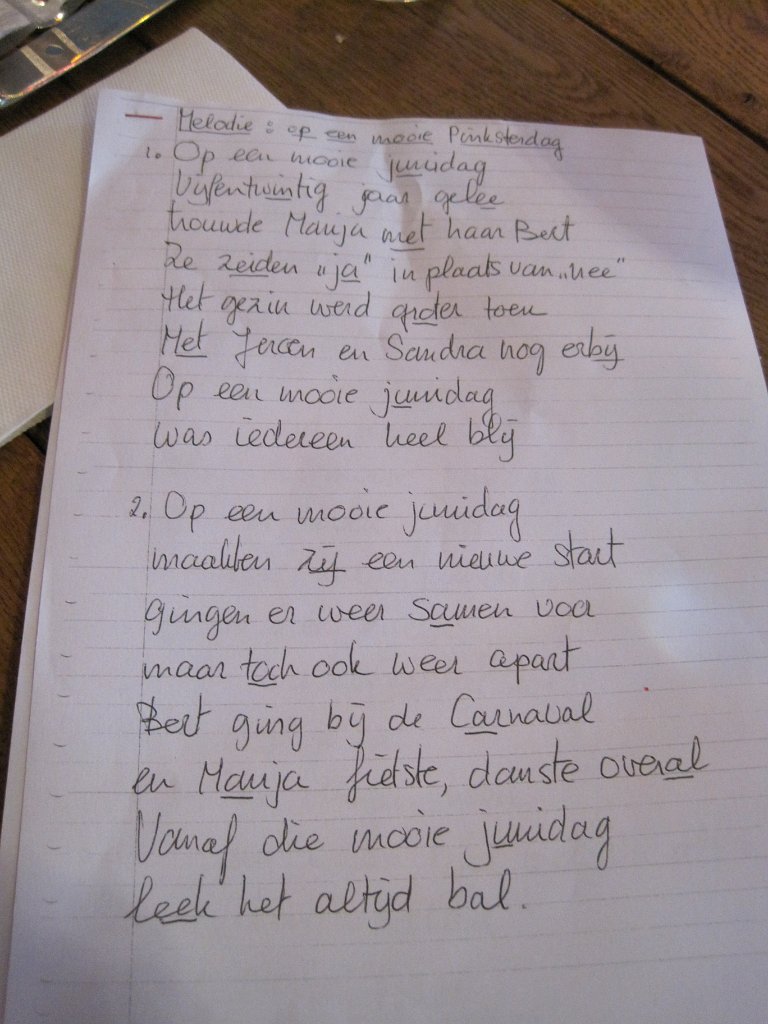 Melodie : op een mooie Pinksterdag
1. Op een mooie junidag
Vijfentwintig jaar gelee
trouwde Marija met haar Bert
Ze zeiden „ja" in plaats van „nee"
Het gezin werd groter toen
Met Jeroen en Sandra nog erbij
Op een mooie junidag
was iedereen heel blij
2. Op een mooie junidag
maakten zij een nieuwe start
gingen er weer samen voor
maar toch ook weer apart
Bert ging bij de Carnaval
en Marija fietste, danste overal
Vanaf die mooie junidag
leek het altijd bal.